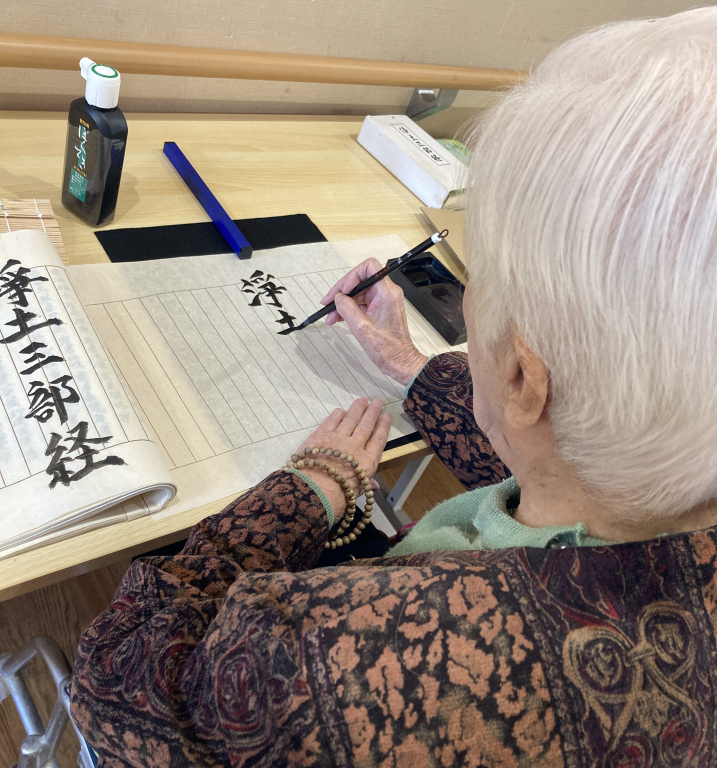 浄土
浄土三部経